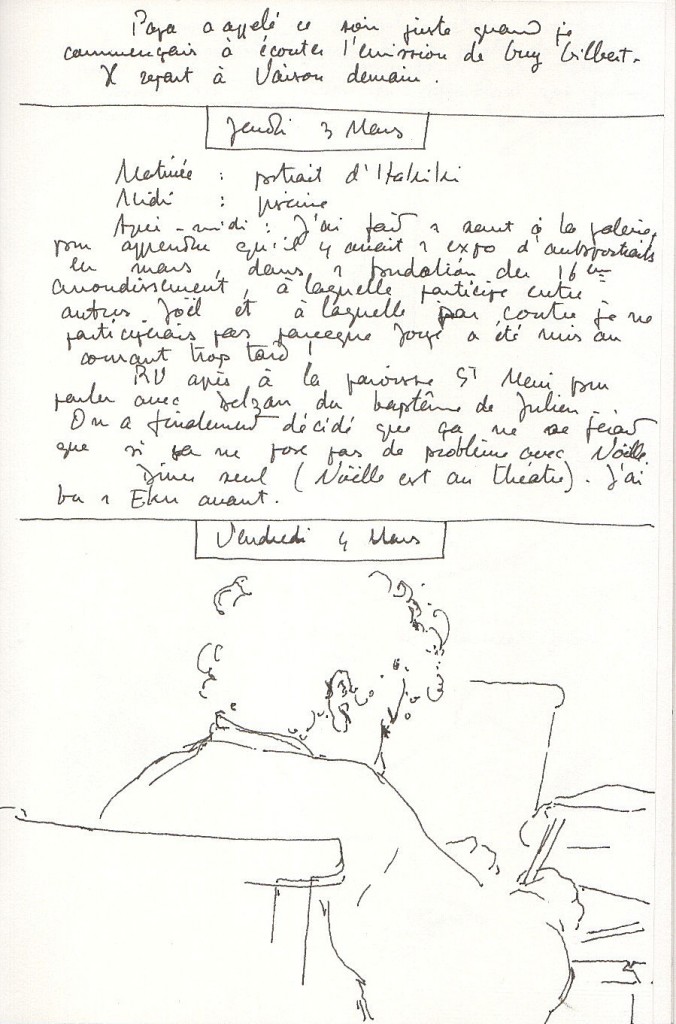 Papa a appelé ce soir juste quand je
commençais à écouter l'émission de Guy Gilbert.
Il repart à Vaison demain.
Jeudi 3 Mars
Matinée : portrait d'
Midi : piscine
Après-midi : J'ai fait 1 saut à la galerie,
pour apprendre qu'il y avait 1 expo d'autoportraits
en mars, dans 1 fondation du 16ème
arrondissement, à laquelle participe entre
autres Joël et à laquelle par contre je ne
participerais pas parceque Joyé a été mis au
courant trop tard !
RV après à la paroisse St Merri pour
parler avec Delzan du baptême de Julien.
On a finalement décidé que ça ne se ferait
que si ça ne pose pas de problème avec Noëlle.
Dîner seul (Noëlle est au théatre). J'ai
bu 1 Eku avant.
Vendredi 4 Mars